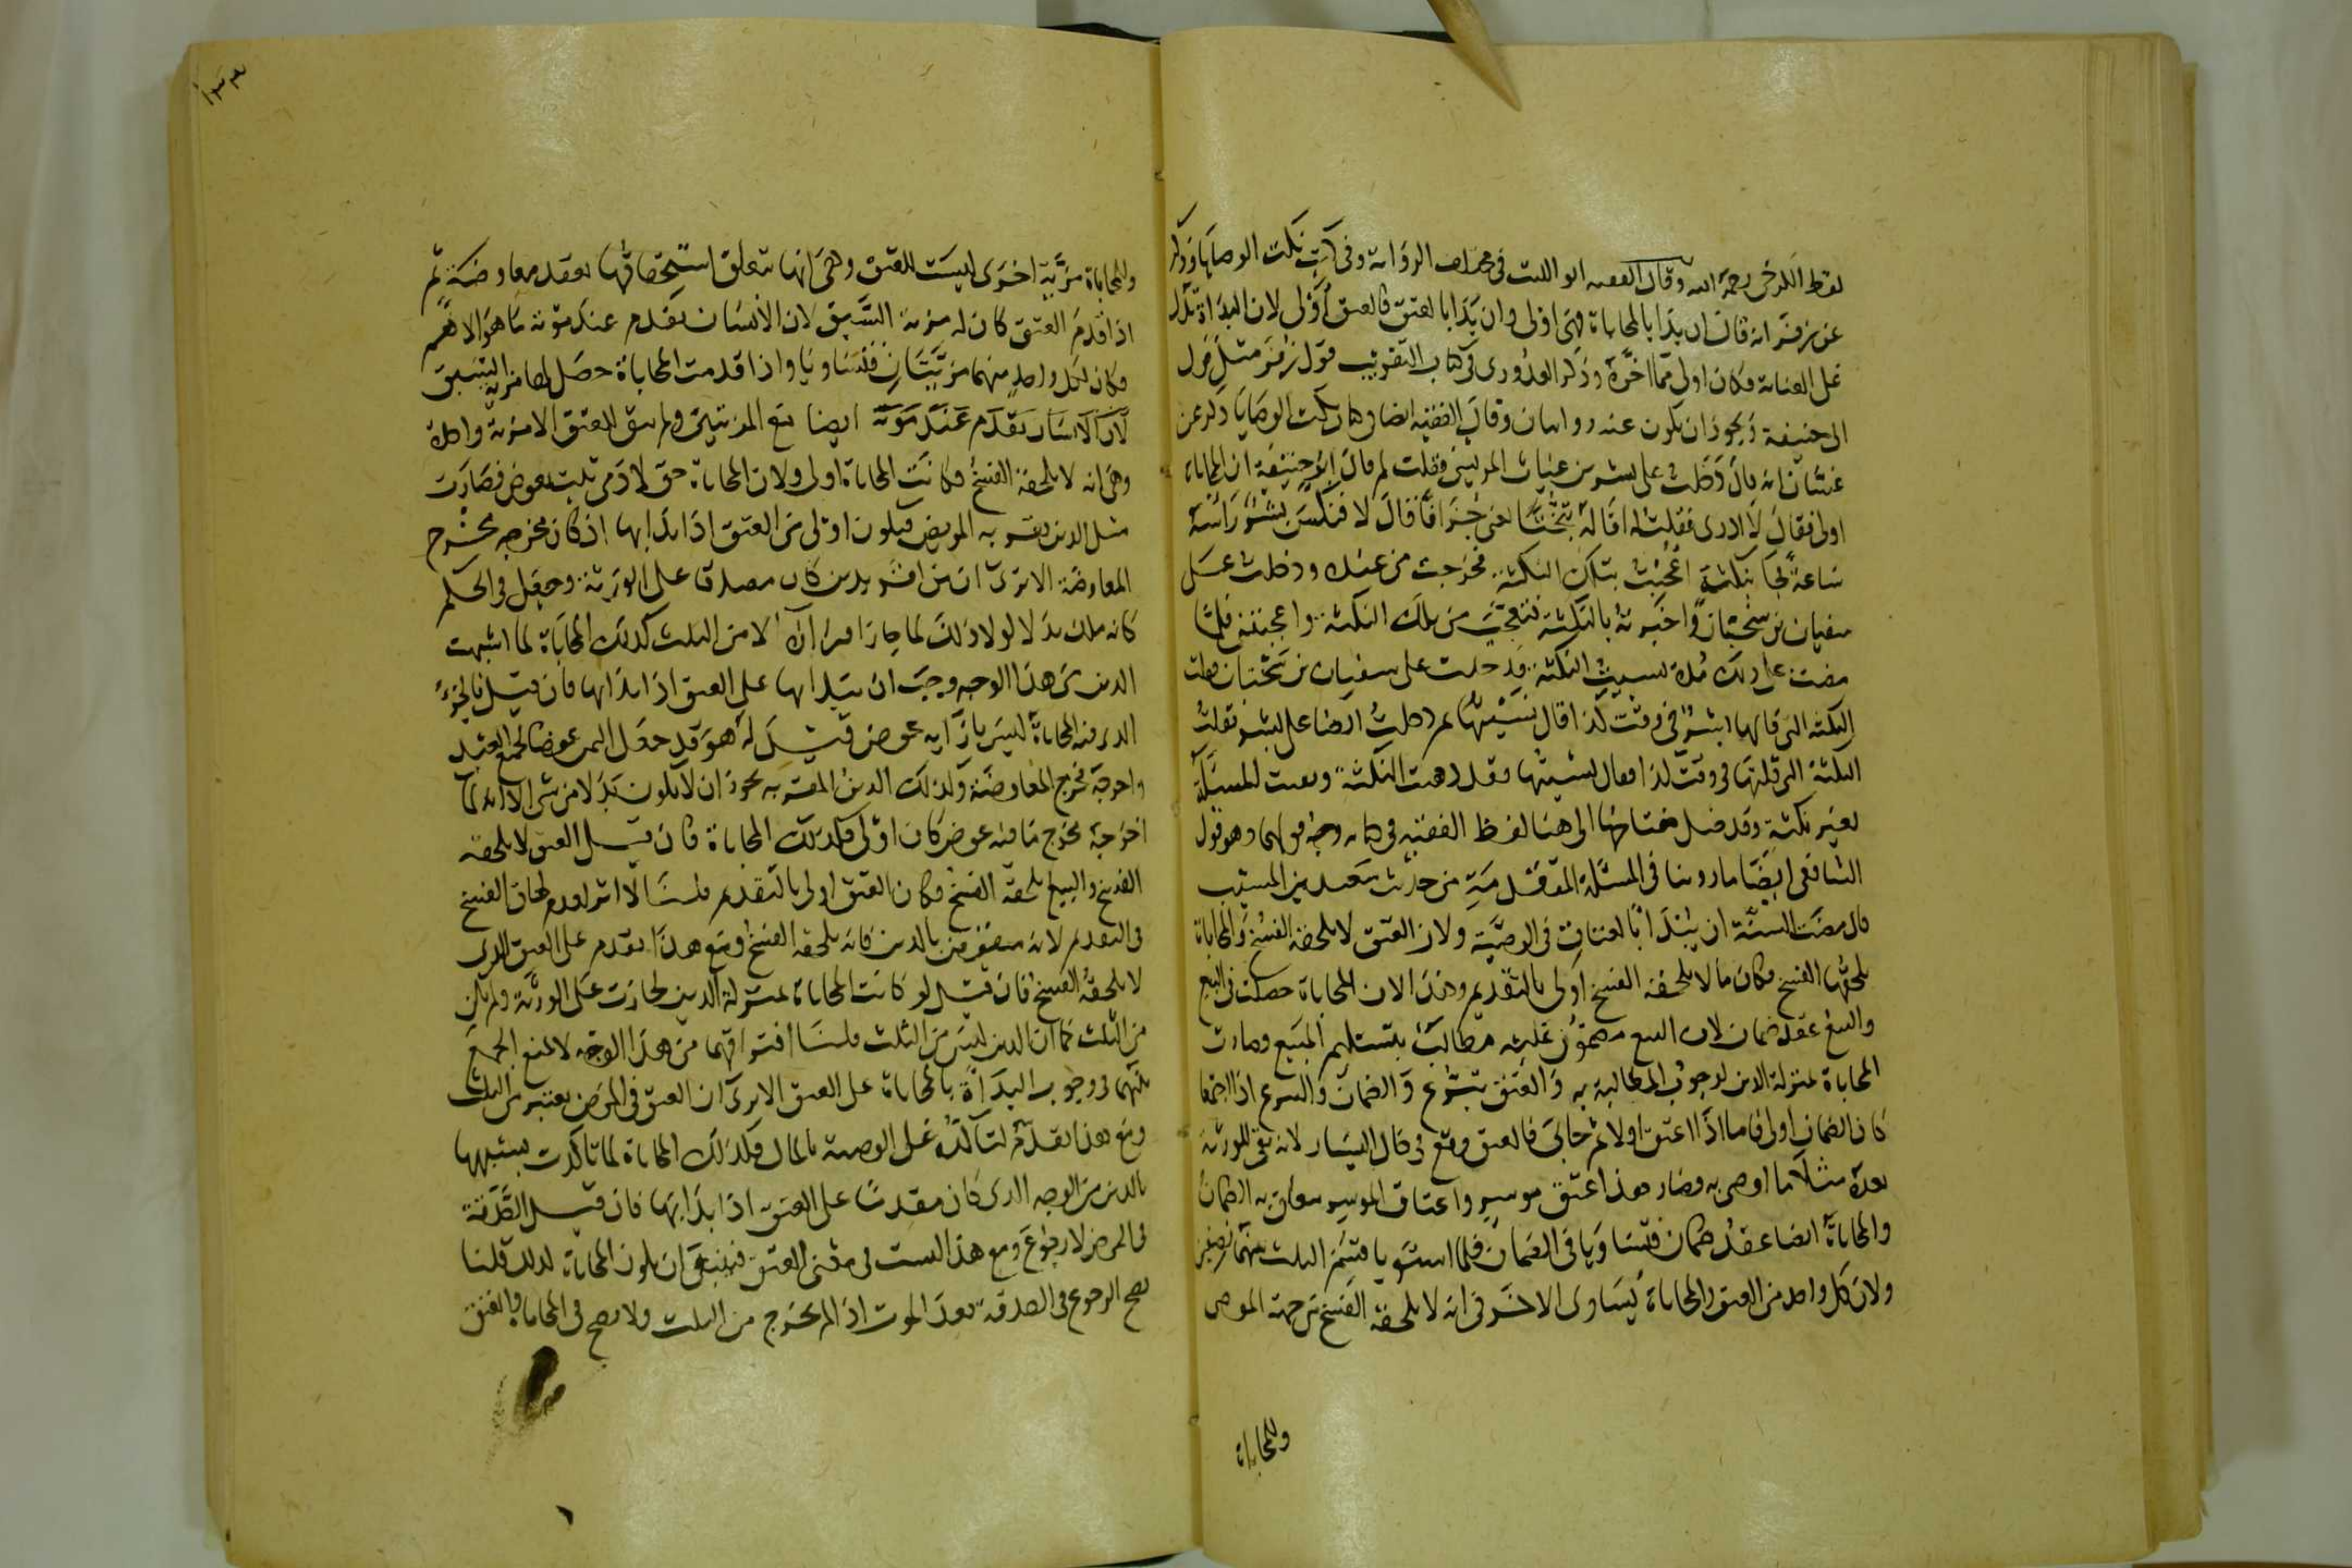 لفظ الكرخي رحمه الله وقال الفقيه ابو الليث في مختلف الرواية وفي كتاب نكت الوصايا وذكر
عن زفر انه قال ان بدا بالمحاباة فهي اولى وان بدا بالعتق فالعتق اولى لان البداة تدل
على العناية فكان اولى مما اخره وذكر القدوري في كتاب التقريب قول زفر مثل قول
ابي حنيفة فيجوز ان يكون عنه روايتان وقال الفقيه ايضا في كتاب نكت الوصايا ذكر عن
غسان انه قال دخلت على بشر بن غياث المريسي فقلت لم قال ابو حنيفة ان المحاباة
اولى فقال لا ادري فقلت له اقاله يعني جزافا فقال لا فنكس بشر راسه
ساعة فجا بنكتة اعجبت بتلك النكتة فخرجت من عنده ودخلت على
سفيان بن سختيان واخبرته بالنكتة فتعجب من تلك النكتة واعجبته فلما
مضت على ذلك مدة نسيت النكتة فدخلت على سفيان بن سختيان فقلت
النكتة التي قالها بشر في وقت كذا قال نسيتها ثم دخلت ايضا على بشر فقلت
النكتة التي قلتها في وقت كذا فقال نسيتها فقد ذهبت النكتة وبقيت المسئلة
بغير نكتة الى هنا لفظ الفقيه في كتابه وجه قولهما وهو قول
الشافعي ايضا ما روينا في المسئلة المتقدمة من حديث سعيد بن المسيب
قال مضت السنة ان يبدا بالعتاق في الوصية ولان العتق لا يلحقه الفسخ والمحاباة
يلحقها الفسخ فكان ما لا يلحقه الفسخ اولى بالتقديم وهذا لان المحاباة حصلت في البيع
والبيع عقد ضمان لان البيع مضمون عليه مطالب بتسليم المبيع وصارت
المحاباة بمنزلة الدين لوجوب المطالبة به والعتق تبرع والضمان والتبرع اذا اجتمعا
كان الضمان اولى فاما اذا اعتق اولا ثم حابى فالعتق وقع في حال اليسار لانه بقي للورثة
بعده مثلا ما اوصى به وصار هذا عتق موسر واعتاق الموسر يتعلق به الضمان
والمحاباة ايضا عقد ضمان فتساويا في الضمان فلما استويا قسم الثلث بينهما نصفين
ولان كل واحد من العتق والمحاباة يساوي الاخر في انه لا يلحقه الفسخ من جهة الموصي
وللمحاباة
وللمحاباة مزية اخرى ليست للعتق وهي انها يتعلق استحقاقها بعقد معاوضة ثم
اذا قدم العتق كان له مزية السبق لان الانسان يقدم عند موته ما هو الاهم
فكان لكل واحد منهما مزيتان فتساويا واذا قدمت المحاباة حصل لها مزية السبق
لان الانسان يقدم عند موته ايضا مع المزيتين ولم يبق للعتق الا مزية واحدة
وهي انه لا يلحقه الفسخ فكانت المحاباة اولى ولان المحاباة حق لادمي ثبت بعوض فصارت
مثل الدين يقر به المريض فيكون اولى من العتق اذا بدا بها اذ كان مخرجه مخرج
المعاوضة الا ترى ان من اقر بدين كان مصدقا على الورثة وجعل في الحكم
كانه ملك بدلا لولا ذلك لما جاز اقراره الا من الثلث كذلك المحاباة لما اشبهت
الدين من هذا الوجه وجب ان يبدا بها على العتق اذا بدا بها فان قيل فالجزء
الذي فيه المحاباة ليس بازايه عوض قيل له هو قد جعل الثمن عوضا لجميع العبد
واخرجه مخرج المعاوضة وكذلك الدين المقر به يجوز ان لا يكون بدلا من شي الا انه لما
اخرجه مخرج ما فيه عوض كان اولى فكذلك المحاباة فان قيل العتق لا يلحقه
الفسخ والبيع يلحقه الفسخ فكان العتق اولى بالتقدم قلنا لا اثر لعدم لحاق الفسخ
في التقديم لانه منتقض بالدين فانه يلحقه الفسخ ومع هذا يقدم على العتق الذي
لا يلحقه الفسخ فان قيل لو كانت المحاباة بمنزلة الدين لجازت على الورثة ولم تكن
من الثلث كما ان الدين ليس من الثلث قلنا افتراقهما من هذا الوجه لا يمنع الجمع
بينهما في وجوب البداة بالمحاباة على العتق الا ترى ان العتق في المرض يعتبر من الثلث
ومع هذا يقدم لتاكده على الوصية بالمال فكذلك المحاباة لما تاكدت بشبهها
بالدين من الوجه الذي كان مقدما على العتق اذا بدا بها فان قيل الصدقة
في المرض لا رجوع ومع هذا ليست في معنى العتق فينبغي ان يكون المحاباة كذلك قلنا
يصح الرجوع في الصدقة بعد الموت اذا لم يخرج من الثلث ولا يصح في المحاباة والعتق